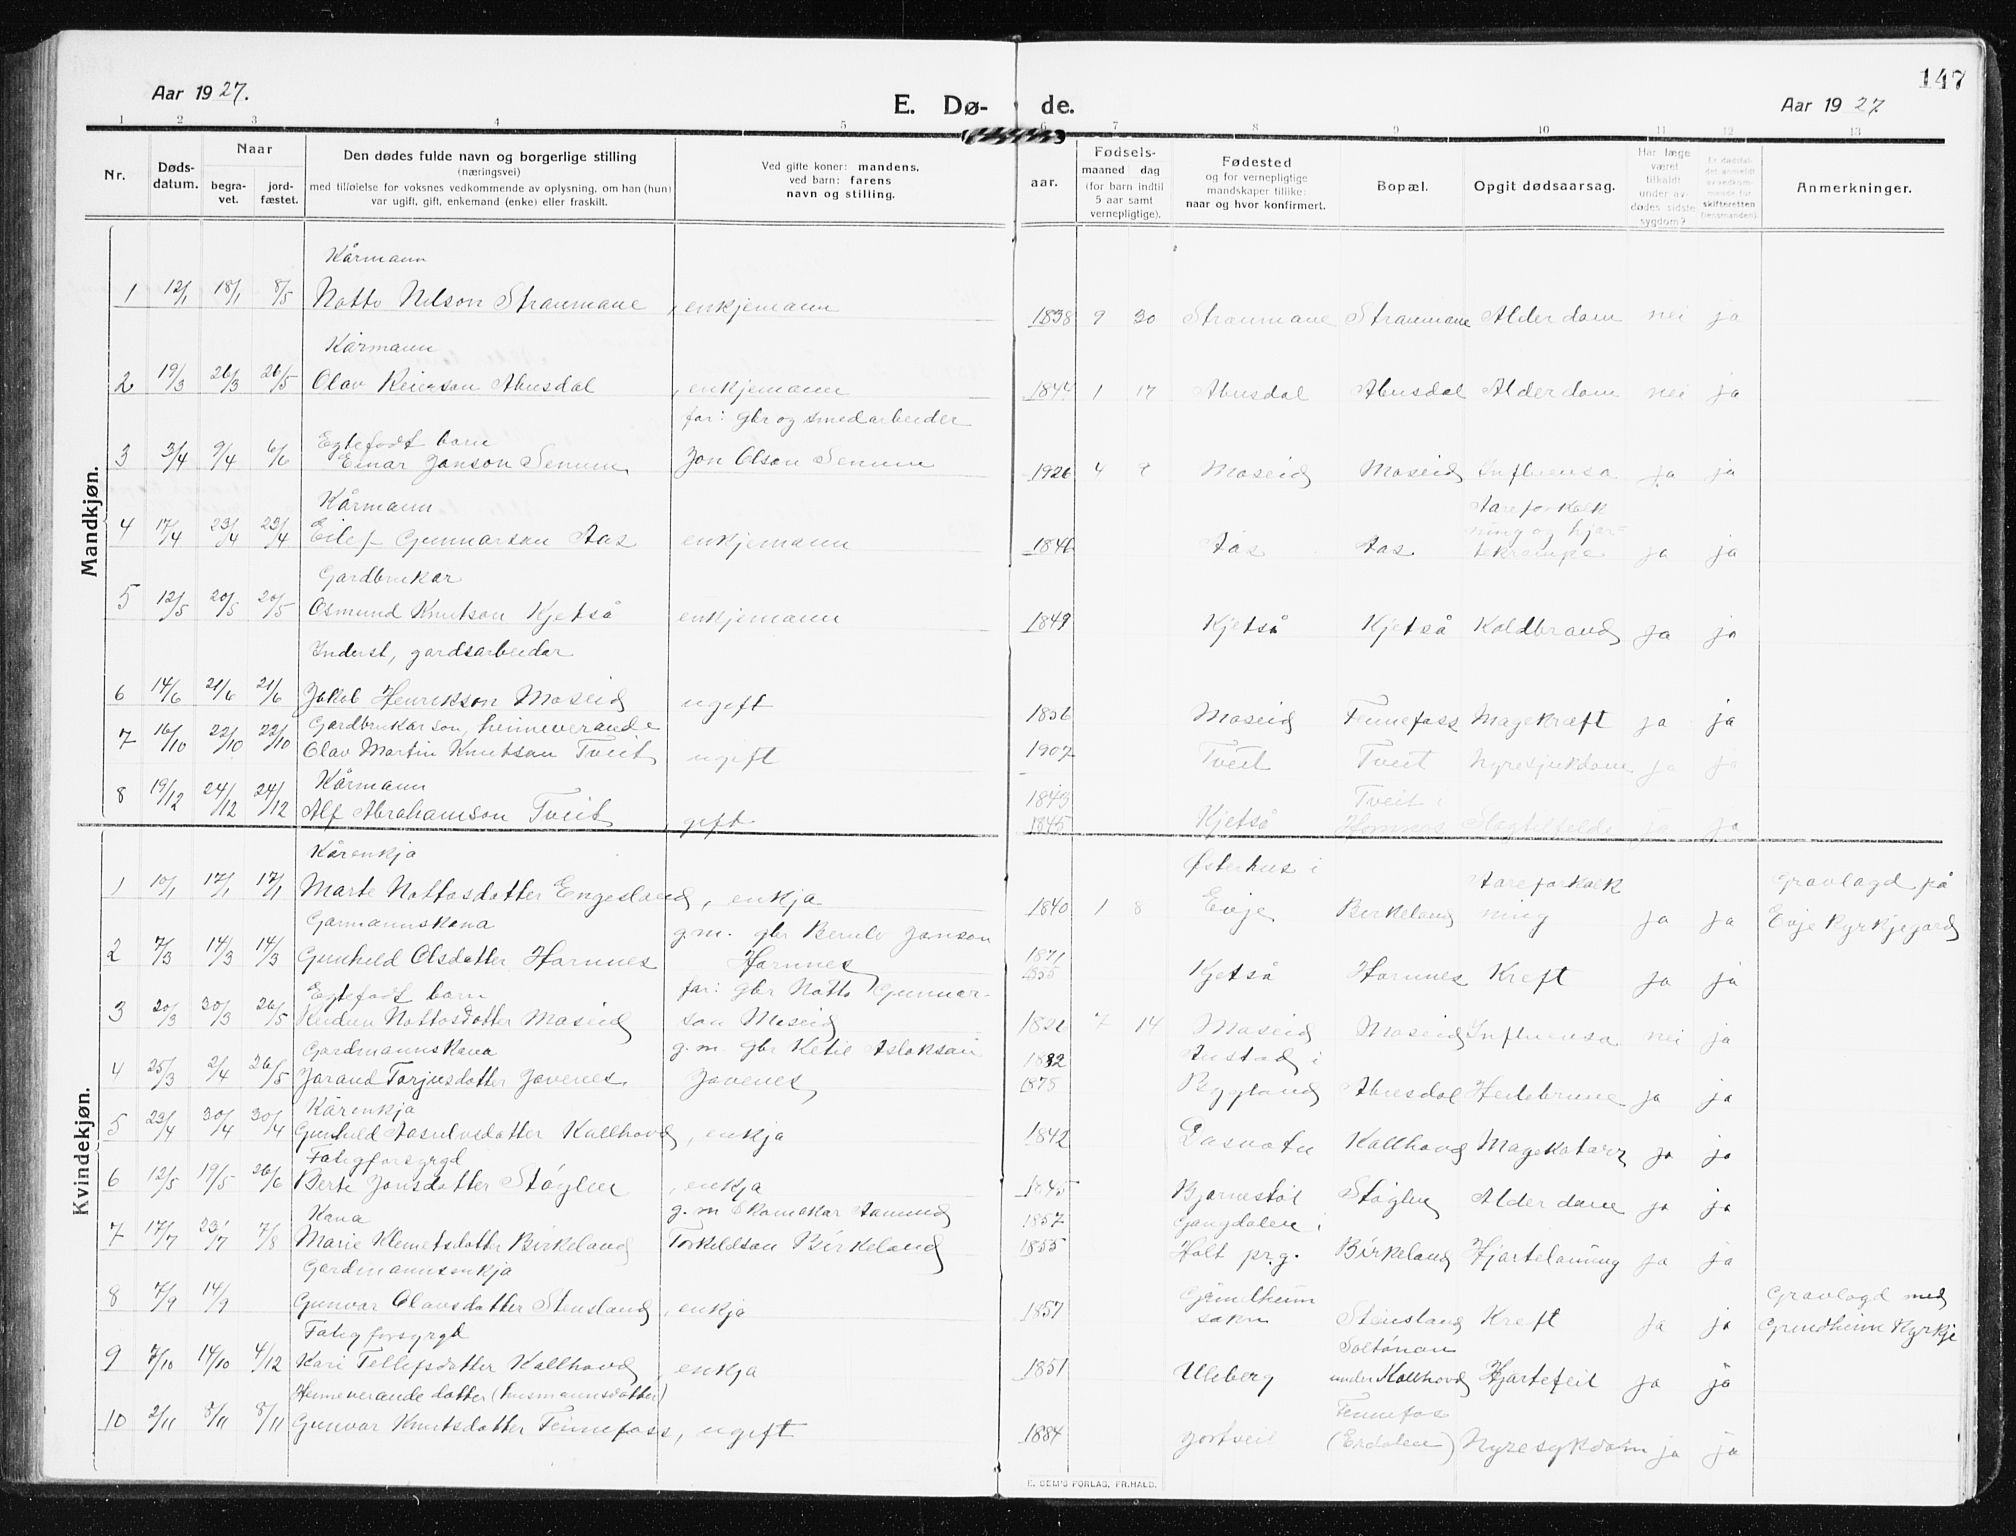 147
Aar 1927.
E. Dø- de.
Aar 1927
1 2 3 4 5 6 7 8 9 10 11 12 13
Nr.
Døds-
datum.
Naar
begra-
vet.
jord-
fæstet.
Den dødes fulde navn og borgerlige stilling
(næringsvei)
med tilføielse for voksnes vedkommende av oplysning, om han (hun)
var ugift, gift, enkemand (enke) eller fraskilt.
Ved gifte koner: mandens,
ved barn: farens
navn og stilling.
aar.
Fødsels-
maaned dag
(for barn indtil
5 aar samt
vernepligtige).
Fødested
og for vernepligtige
mandskaper tillike:
naar og hvor konfirmert.
Bopæl.
Opgit dødsaarsag.
Har læge
været
tilkaldt
under av-
dødes sidste
sygdom?
Er dødsfal-
det anmeldt
av vedkom-
mende for
skifteretten
(lensmanden).
Anmerkninger.
Mandkjøn.
Kårmann
1 12/1 18/1 8/5 Notto Nilson Straumane, enkjemann 1838 9 30 Straumane Straumane Alderdom nei ja
Kårmann
2 19/3 26/3 26/5 Olav Reierson Abusdal, enkjemann 1844 1 17 Abusdal Abusdal Alderdom nei ja
far: gbr og smedarbeider
Egtefødt barn
3 3/4 9/4 6/6 Einar Jonson Senum Jon Olson Senum 1926 4 9 Moseid Moseid Influensa ja ja
Kårmann
Aareforkalk
ning og hjar-
4 17/4 23/4 23/4 Eilef Gunnarson Aas enkjemann 1846 Aas Aas tekrampe ja ja
Gardbrukar
5 12/5 20/5 20/5 Osmund Knutson Kjetså enkjemann 1849 Kjetså Kjetså Koldbrand ja ja
Inderst, gardsarbeidar
6 14/6 21/6 21/6 Jakob Henrikson Moseid ugift 1856 Moseid Fennefoss Magekræft ja ja
Gardbrukarson, heimeverande
7 16/10 22/10 22/10 Olav Martin Knutson Tveit ugift 1907 Tveit Tveit Nyresjukdom ja ja
Kårmann
1843
Tveit i
8 19/12 24/12 24/12 Alf Abrahamson Tveit, gift 1845 Kjetså Hornnes Slagtilfelde ja ja
Kvindekjøn.
Kårenkja
Østerhus i
Aareforkalk
Gravlagd på
1 10/1 17/1 17/1 Marte Nottosdotter Engesland, enkja 1840 1 8 Evje Birkeland ning ja ja Evje Kyrkjegard
Garmannskona
g.m. gbr Jonson
1871
2 7/3 14/3 14/3 Gunhild Olsdotter Hornnes Hornnes 1855 Kjetså Hornnes Kreft ja ja
Egtefødt barn
far: gbr Notto Gunnar-
3 20/3 30/3 26/5 Nottosdotter Moseid son Moseid 1926 7 14 Moseid Moseid Influensa nei ja
Gardmannskona
g.m. gbr Ketil Aslakson
1882
Austad i
4 25/3 2/4 26/5 Jorand Torjusdotter Jovenes Jovenes 1878 Bygland Abusdal Heilebrune ja ja
Kårenkja
5 23/4 30/4 30/4 Gunhild Aasulvsdotter Kallhovd, enkja 1842 Dåsvatn Kallhovd Magekatarr ja ja
Fatigforsyrgd
6 12/5 19/5 26/6 Berte Jonsdotter Støylen, enkja 1845 Bjørnestøl Støylen Alderdom ja ja
Kona
g.m. Skomakar Aamund
1857
Gangdalen i
7 17/7 23/7 7/8 Marie Klemetsdotter Birkeland Torkeldson Birkeland 1855 Holt pr.g. Birkeland Hjartelaming ja ja
Gardmannsenkja
Grindheim
Gravlagd med
8 7/9 14/9 Gunvor Olavsdotter Stensland, enkja 1857 sokn Stensland Kreft ja ja Grindheim Kyrkje
Fatigforsyrgd
9 7/10 14/10 4/12 Kari Tellefsdotter Kallhovd, enkja 1851 Uleberg under Kallhovd Hjartefeil ja ja
Heimeverande dotter (husmannsdotter)
Fennefos
10 2/11 8/11 8/11 Gunvor Knutsdotter Fennefoss, ugift 1884 Jortveit (Eidalen) Nyresykdom ja ja
E. SEM'S FORLAG, FR.HALD.